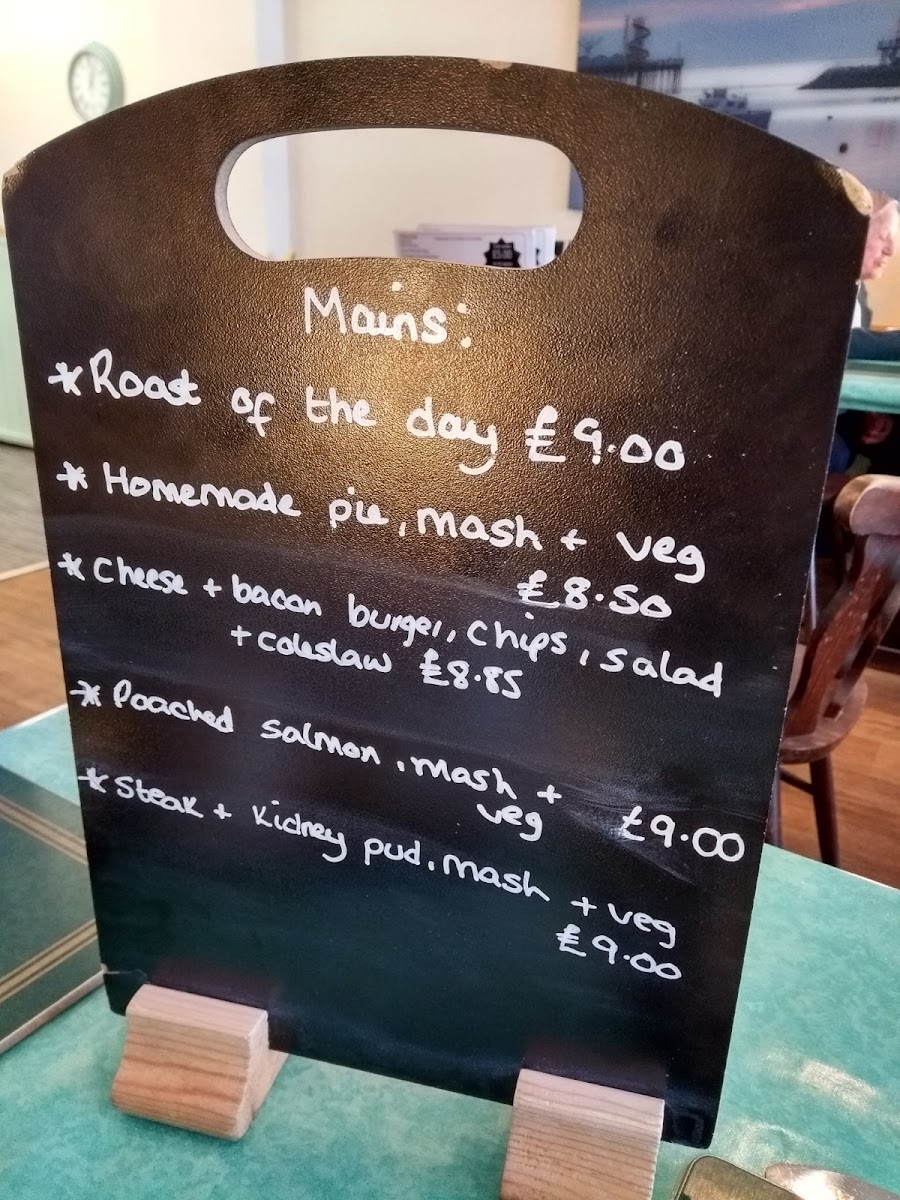 £5.00
Mains:
* Roast of the day £9.00
* Homemade pie, mash + veg
£8.50
* Cheese + bacon burger, chips, salad
+ coleslaw £8.85
* Poached salmon, mash +
veg £9.00
* Steak + kidney pud, mash + veg
£9.00